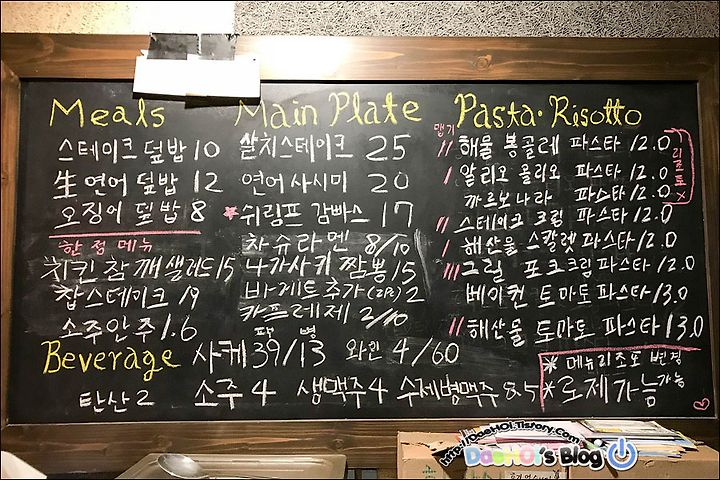 Meals
스테이크 덮밥 10
生연어 덮밥 12
오징어 덮밥 8
한정메뉴
치킨 참깨 샐러드 15
찹스테이크 19
소주안주 1.6
Main Plate
살치스테이크 25
연어사시미 20
*쉬림프 감빠스 17
차슈라멘 8/10
나가사키 짬뽕 15
바게트추가 (2P) 2
카프레제 2/10
Pasta·Risotto
맵기
// 해물 봉골레 파스타 12.0
/ 알리오 올리오 파스타 12.0
까르보나라 파스타 12.0
리조또 x
// 스테이크 크림 파스타 12.0
/ 해산물 스칼렛 파스타 12.0
/// 그림 포크크림파스타 12.0
베이컨 토마토 파스타 13.0
// 해산물 토마토 파스타 13.0
Beverage 사케 39/13 와인 4/60
잔 병
탄산 2 소주 4 생맥주 4 수제병맥주 8.5
* 메뉴리조또 변경 가능
* 로제가능
http://DaeHOI.Tistory.Com
DaeHOI's Blog